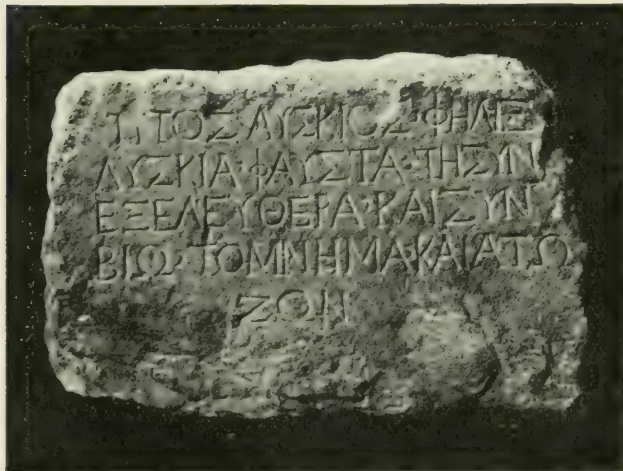 ΤΙΤΟΣ ΛΥΣΚΙΟΣ·ΦΗΛΙΞ
ΛΥΣΚΙΑ·ΦΑΥΣΤΑ·ΤΗΣΥΝ
ΕΞΕΛΕΥΘΕΡΑ·ΚΑΙΣΥΝ
ΒΙΩ·ΤΟΜΝΗΜΑ·ΚΑΙΑΤΩ
ΖΟΗ